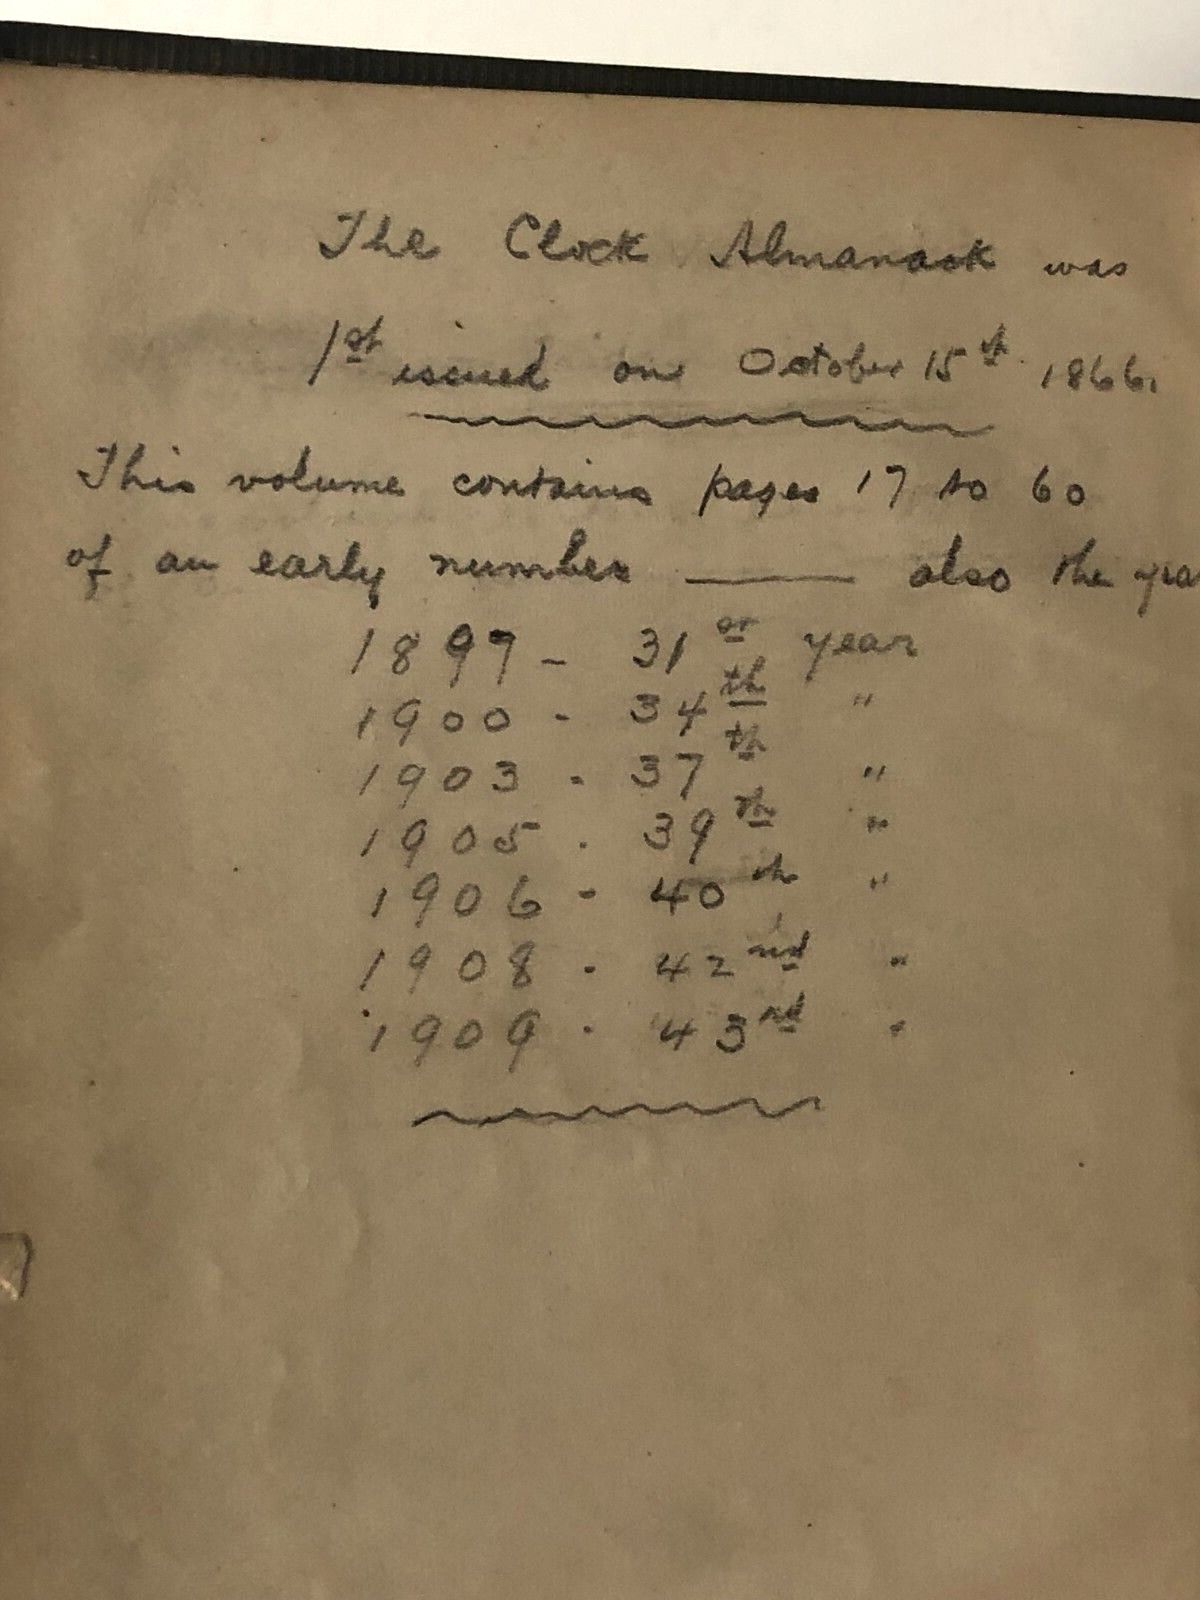 The Clock Almanack was
1st issued on October 15th 1866.
This volume contains pages 17 to 60
of an early number —— also the year
1897 - 31st year
1900 - 34th "
1903 - 37th "
1905 - 39th "
1906 - 40th "
1908 - 42nd "
1909 - 43rd "